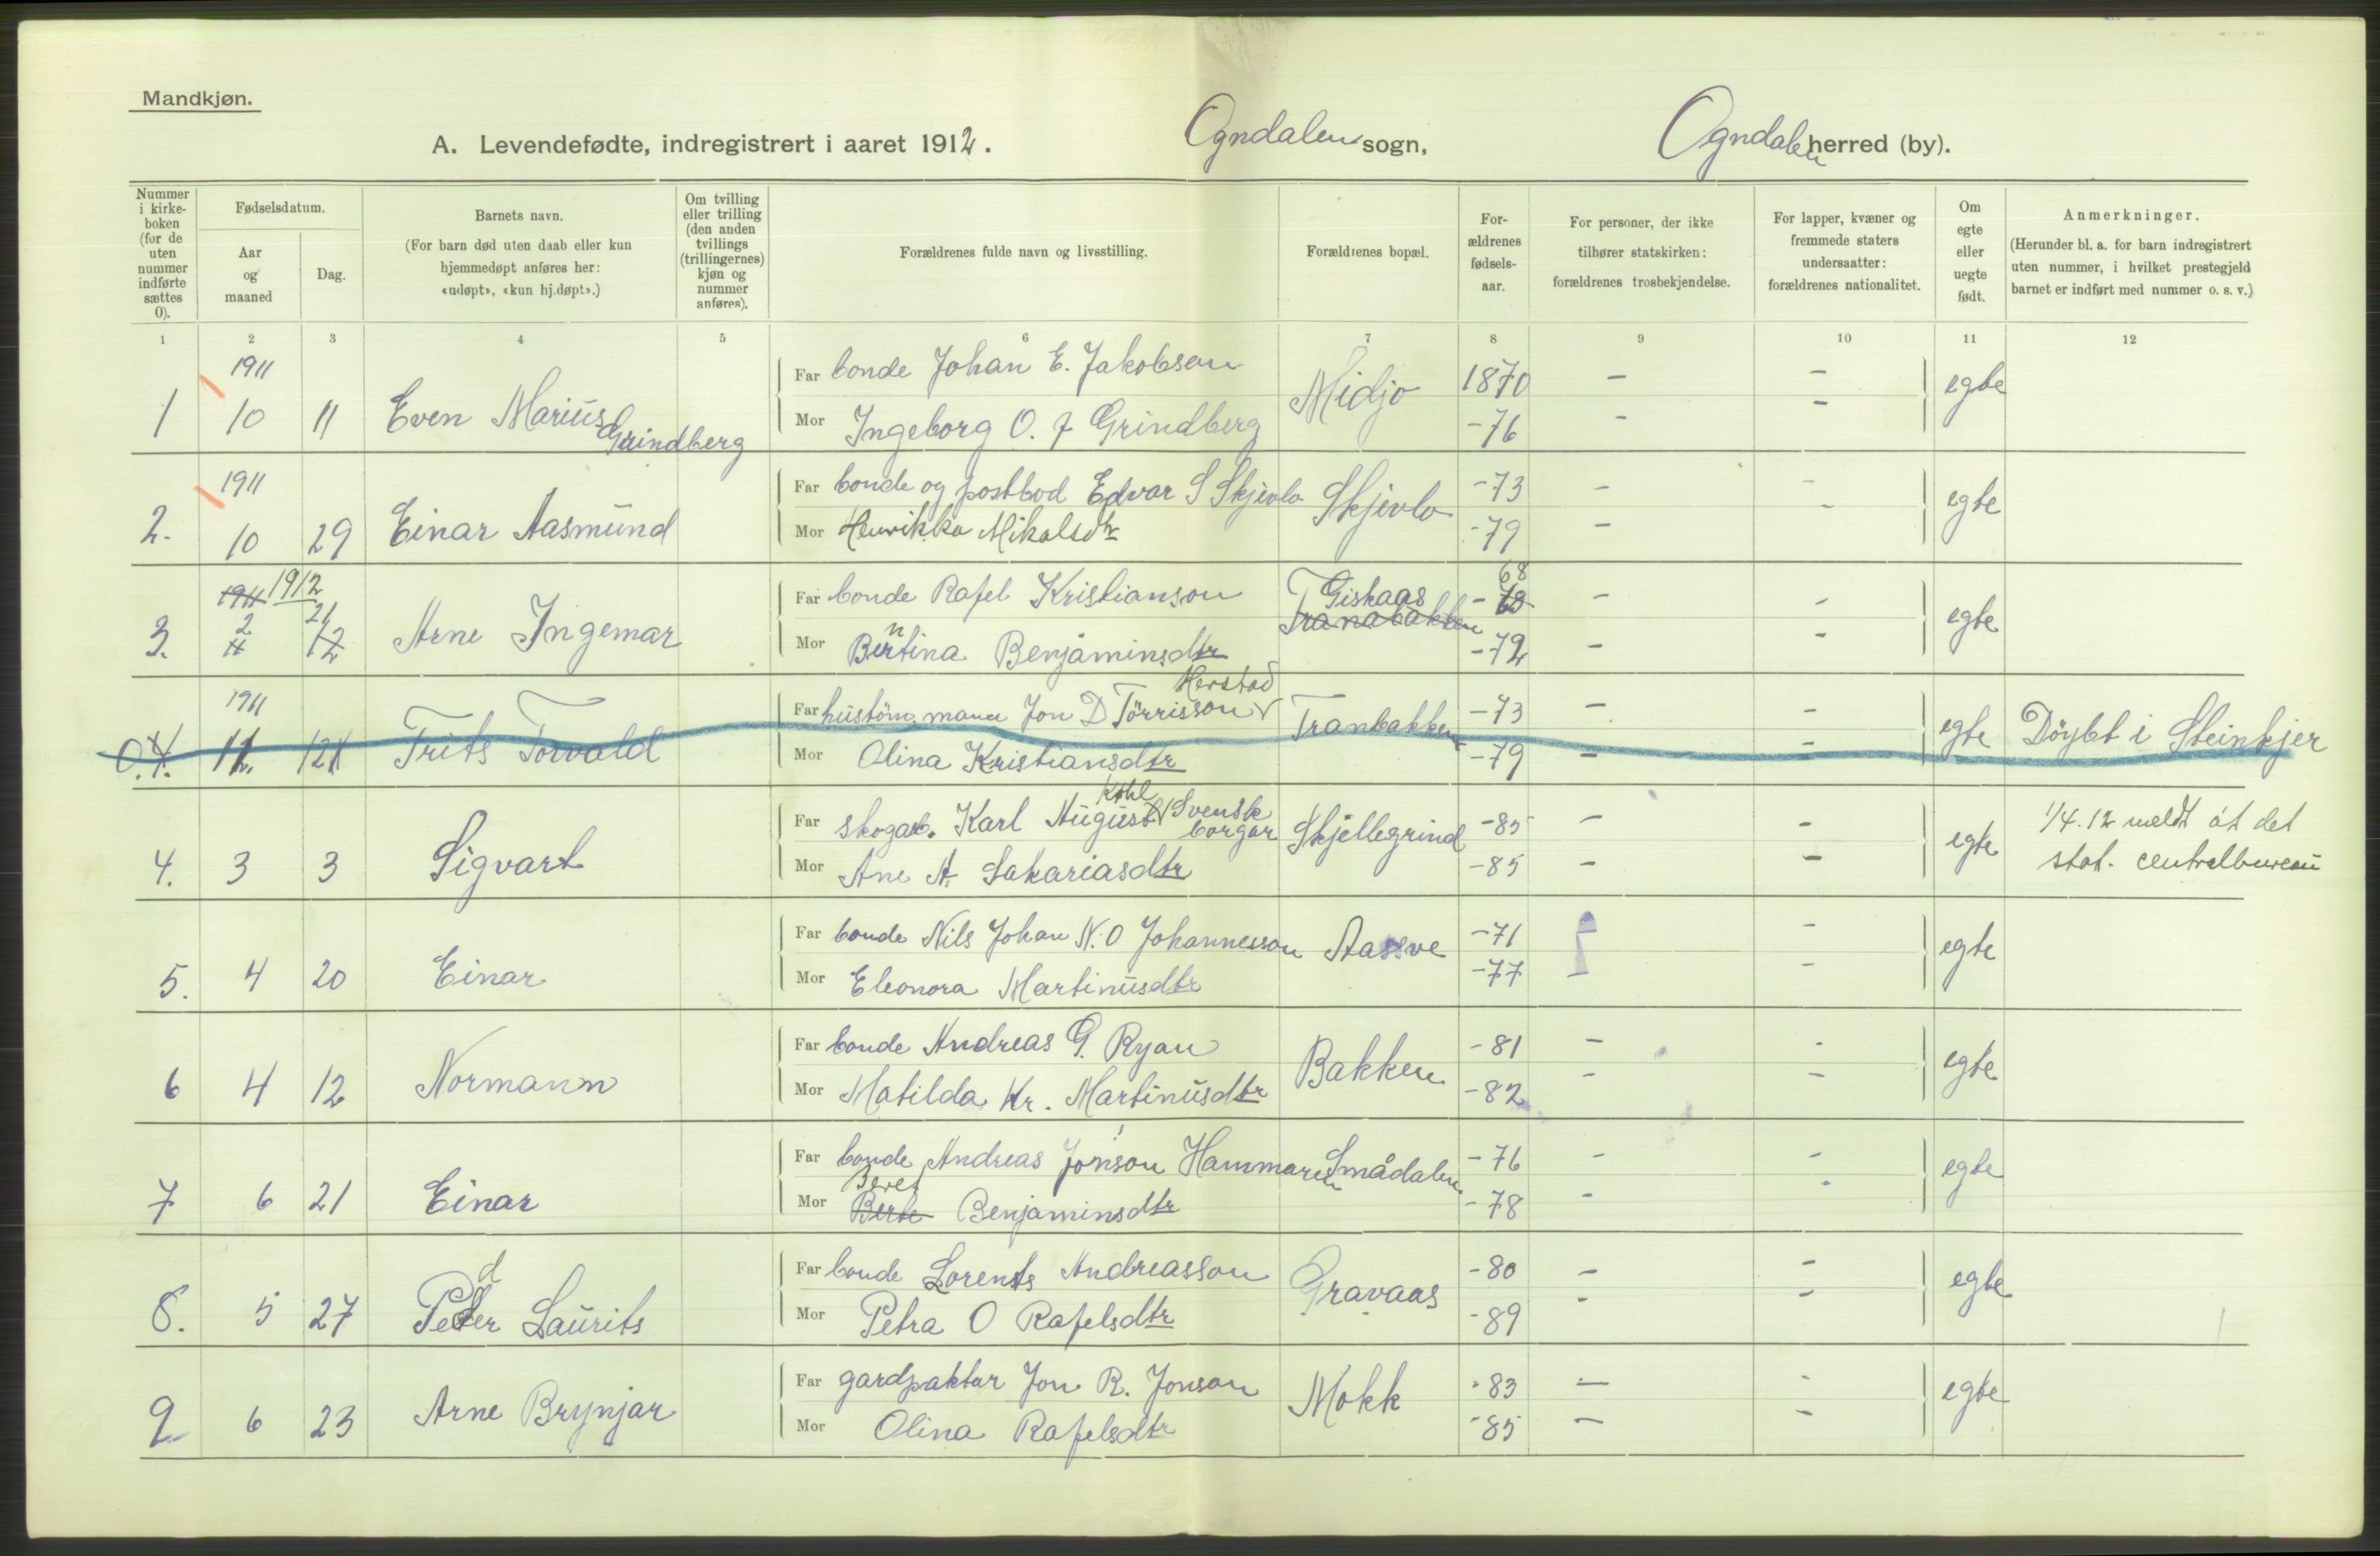 Mandkjøn.
A. Levendefødte, indregistrert i aaret 1912. Ogndalen sogn, Ogndalen herred (by).
Nummer i kirke-boken (for de uten nummer indførte sættes 0).
Fødselsdatum.
Aar og maaned
Dag.
Barnets navn.
(For barn død uten daab eller kun hjemmedøpt anføres her: «udøpt», «kun hj.døpt».)
Om tvilling eller trilling (den anden tvillings (trillingernes) kjøn og nummer anføres).
Forældrenes fulde navn og livsstilling.
Forældrenes bopæl.
For-ældrenes fødsels-aar.
For personer, der ikke tilhører statskirken: forældrenes trosbekjendelse.
For lapper, kvæner og fremmede staters undersaatter: forældrenes nationalitet.
Om egte eller uegte født.
Anmerkninger.
(Herunder bl. a. for barn indregistrert uten nummer, i hvilket prestegjeld barnet er indført med nummer o. s. v.)
1 2 3 4 5 6 7 8 9 10 11 12
1911
Far bonde Johan E. Jakobsen Midjo 1870 - - egte
1 10 11 Even Marius Grindberg
Mor Ingeborg O. f Grindberg -76 - -
1911
Far bonde og postbod Edvar S Skjevlo Skjevlo -73 - - egte
2. 10 29 Einar Aasmund
Mor Henrikka Mikalsdtr -79 - -
1911 1912
Far bonde Rafel Kristianson Giskaas Tranabakken -68 - - egte
3. 2 21 12 Arne Ingemar
Mor Bentina Benjaminsdtr -72 - -
1911 Herstad
Far husköm. mann Jon D Törrisson Tranbakken -73 - - egte Döybt i Steinkjer
0.4. 11. 121 Frits Torvald
Mor Olina Kristiansdtr -79 - -
Kohl
Far skogarb. Karl August Svensk borgar Skjellegrind -85 - - egte 1/4.12 meldt åt det
4. 3 3 Sigvart
Mor Ane A. Sakariasdtr -85 - - stat. centralbureau
Far bonde Nils Johan N. O Johannesson Aassve -71 - egte
5. 4 20 Einar
Mor Eleonora Martinusdtr -77 - -
Far bonde Andreas G. Ryan Bakken -81 - - egte
6 4 12 Normann
Mor Matilda Kr. Martinusdtr -82 - -
Far bonde Andreas Jonson Hammaren Smådalen -76 - - egte
7 6 21 Einar
Beret
Mor Berte Benjaminsdtr -78 - -
Far bonde Lorents Andreasson Gravaas -80 - - egte
8. 5 27 Peder Laurits
Mor Petra O Rafelsdtr -89 - -
Far gardpaktar Jon R. Jonson Mokk -83 - - egte
9 6 23 Arne Brynjar
Mor Olina Rafelsdtr -85 - -